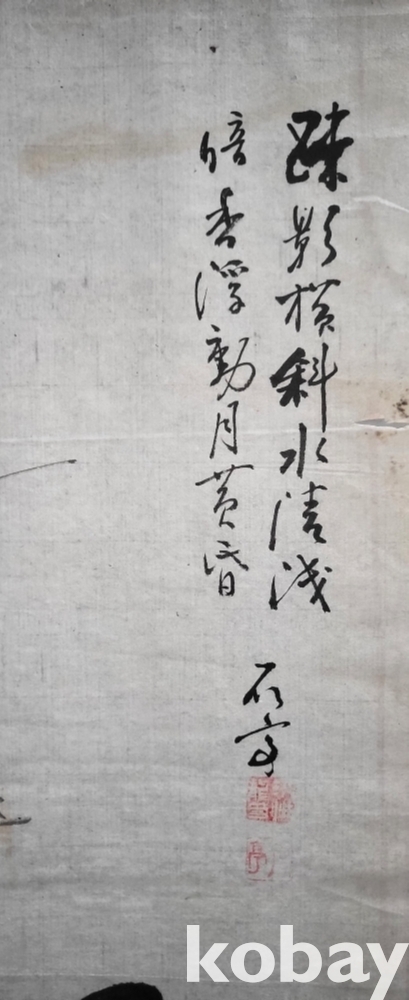 踈影横斜水清浅
暗香浮動月黄昏
石亭
kobay